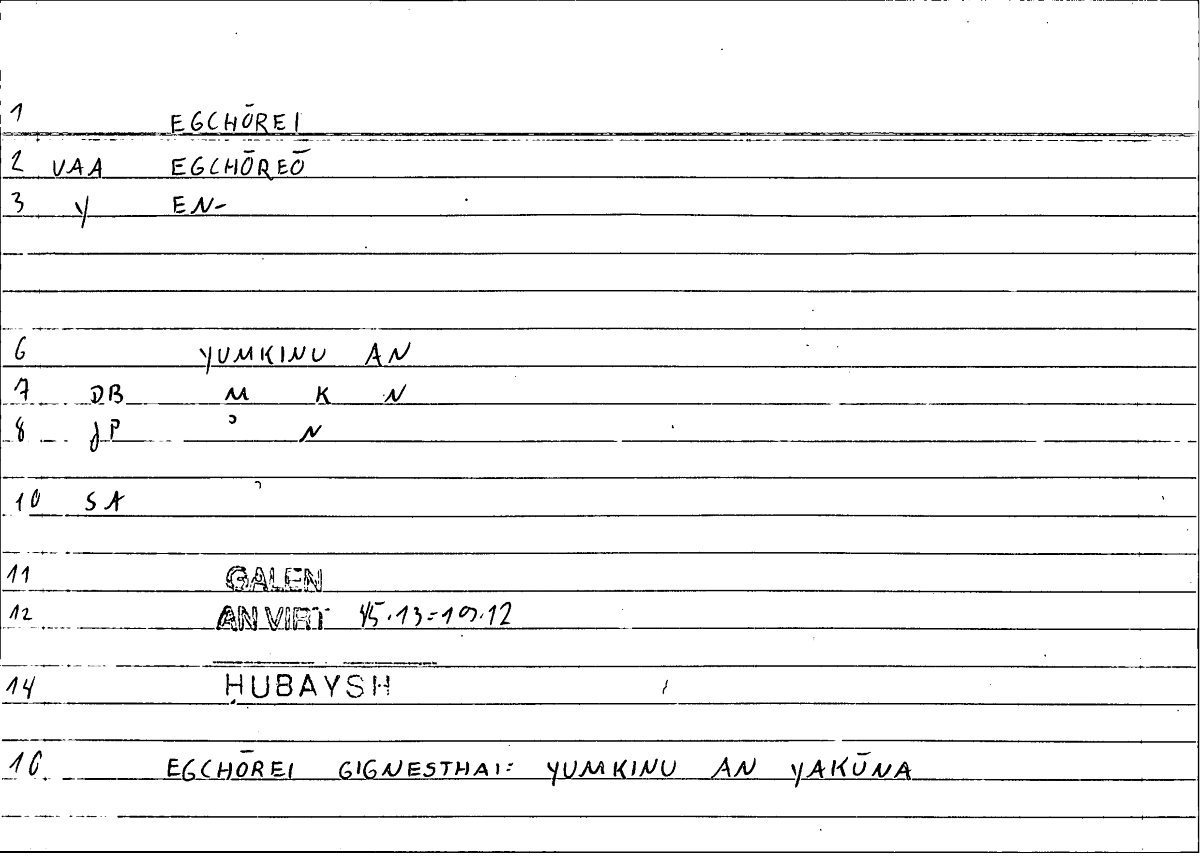 1 EGCHŌREI
2 VAA EGCHŌREŌ
3 y EN-
6 YUMKINU AN
7 DB M K N
8 JP ʾ N
10 SA
11 GALEN
12 AN VIRT 45.13=19.12
14 ḤUBAYSH
16 EGCHŌREI GIGNESTHAI: YUMKINU AN YAKŪNA